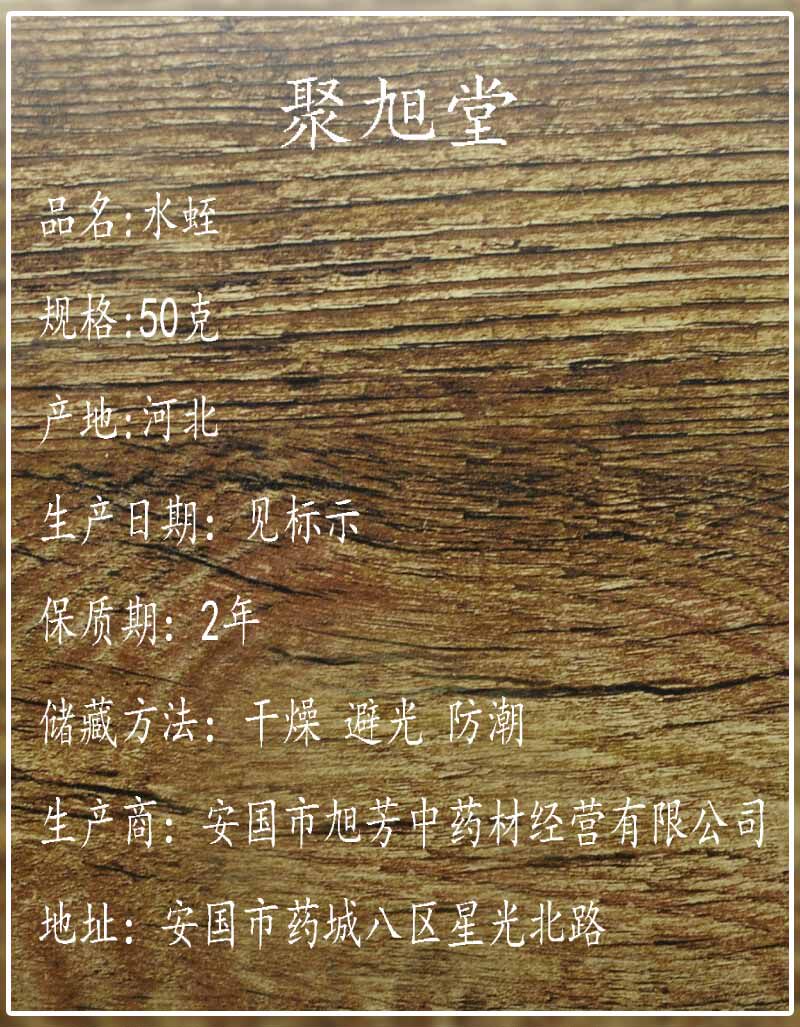 聚旭堂
品名:水蛭
规格:50克
产地:河北
生产日期：见标示
保质期：2年
储藏方法：干燥 避光 防潮
生产商：安国市旭芳中药材经营有限公司
地址：安国市药城八区星光北路